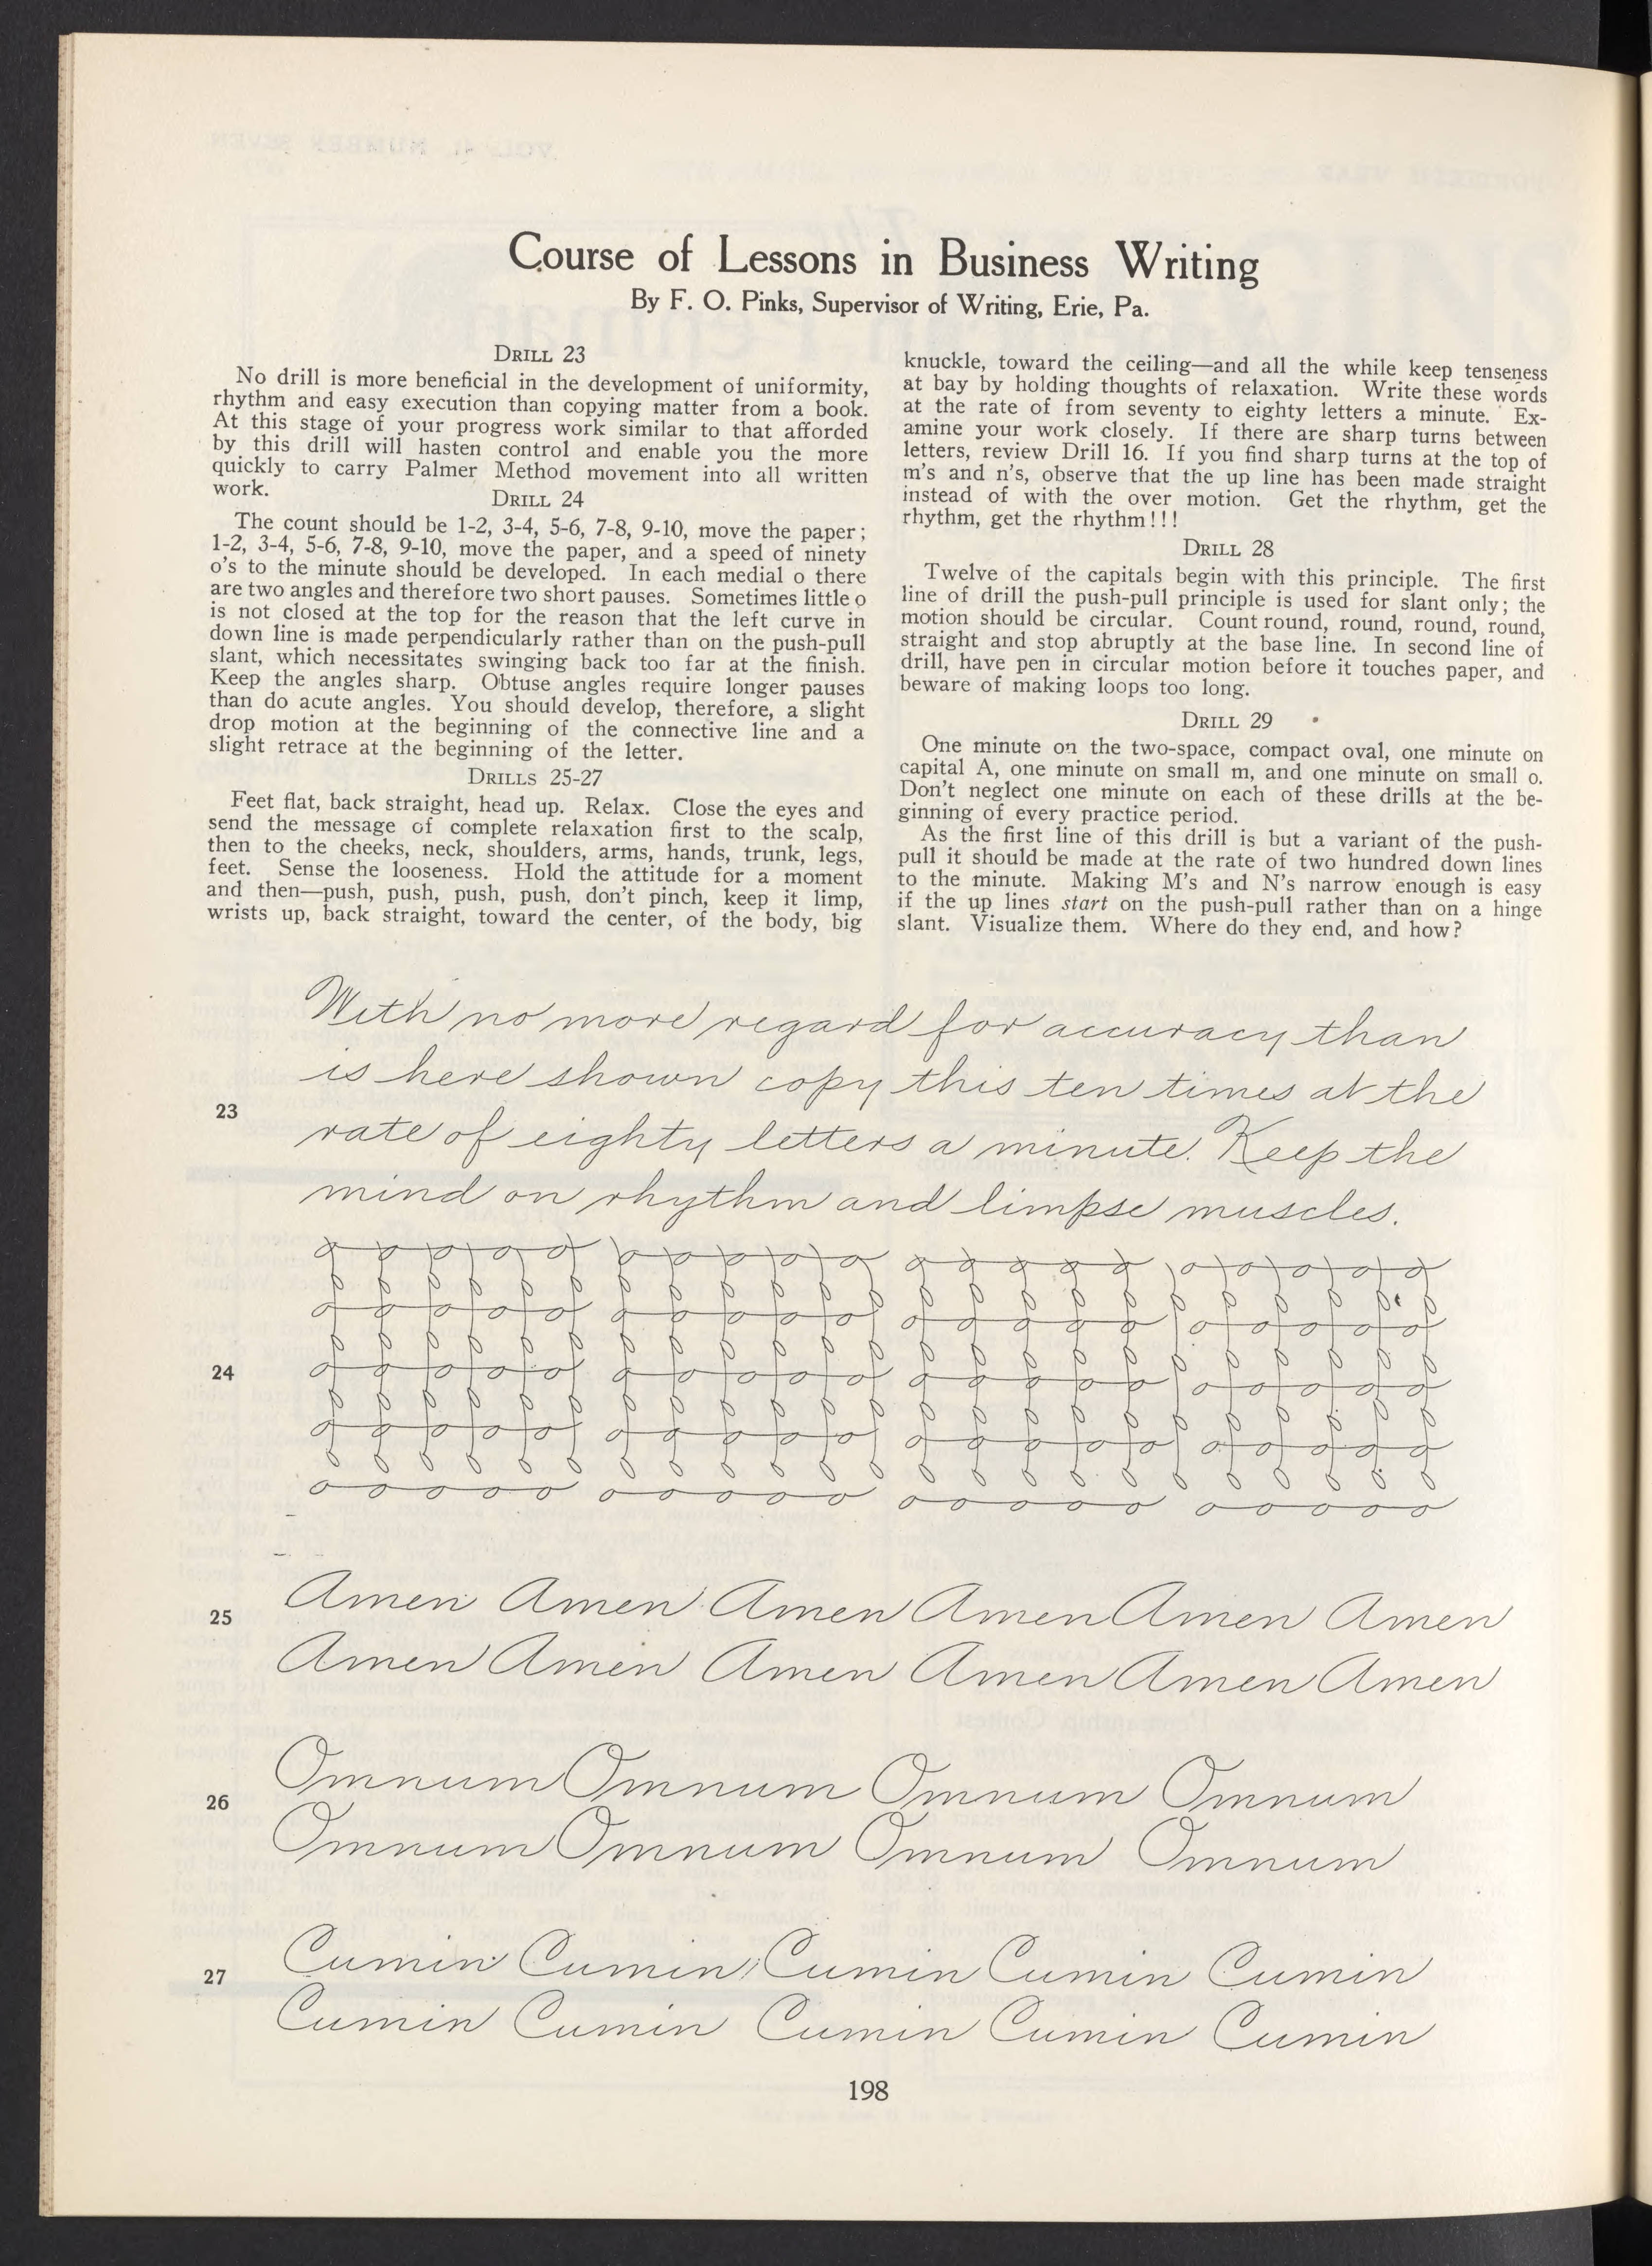 Course of Lessons in Business Writing
By F. O. Pinks, Supervisor of Writing, Erie, Pa.
DRILL 23
No drill is more beneficial in the development of uniformity,
rhythm and easy execution than copying matter from a book.
At this stage of your progress work similar to that afforded
by this drill will hasten control and enable you the more
quickly to carry Palmer Method movement into all written
work.
DRILL 24
The count should be 1-2, 3-4, 5-6, 7-8, 9-10, move the paper;
1-2, 3-4, 5-6, 7-8, 9-10, move the paper, and a speed of ninety
o's to the minute should be developed. In each medial o there
are two angles and therefore two short pauses. Sometimes little o
is not closed at the top for the reason that the left curve in
down line is made perpendicularly rather than on the push-pull
slant, which necessitates swinging back too far at the finish.
Keep the angles sharp. Obtuse angles require longer pauses
than do acute angles. You should develop, therefore, a slight
drop motion at the beginning of the connective line and a
slight retrace at the beginning of the letter.
DRILLS 25-27
Feet flat, back straight, head up. Relax. Close the eyes and
send the message of complete relaxation first to the scalp,
then to the cheeks, neck, shoulders, arms, hands, trunk, legs,
feet. Sense the looseness. Hold the attitude for a moment
and then—push, push, push, push, don't pinch, keep it limp,
wrists up, back straight, toward the center, of the body, big
knuckle, toward the ceiling—and all the while keep tenseness
at bay by holding thoughts of relaxation. Write these words
at the rate of from seventy to eighty letters a minute. Ex-
amine your work closely. If there are sharp turns between
letters, review Drill 16. If you find sharp turns at the top of
m's and n's, observe that the up line has been made straight
instead of with the over motion. Get the rhythm, get the
rhythm, get the rhythm!!!
DRILL 28
Twelve of the capitals begin with this principle. The first
line of drill the push-pull principle is used for slant only; the
motion should be circular. Count round, round, round, round,
straight and stop abruptly at the base line. In second line of
drill, have pen in circular motion before it touches paper, and
beware of making loops too long.
DRILL 29
One minute on the two-space, compact oval, one minute on
capital A, one minute on small m, and one minute on small o.
Don't neglect one minute on each of these drills at the be-
ginning of every practice period.
As the first line of this drill is but a variant of the push-
pull it should be made at the rate of two hundred down lines
to the minute. Making M's and N's narrow enough is easy
if the up lines start on the push-pull rather than on a hinge
slant. Visualize them. Where do they end, and how?
With no more regard for accuracy than
is here shown copy this ten times at the
23
rate of eighty letters a minute. Keep the
mind on rhythm and limpse muscles.
24
25
Amen Amen Amen Amen Amen Amen
Amen Amen Amen Amen Amen Amen
26
Omnum Omnum Omnum Omnum
Omnum Omnum Omnum Omnum
27
Cumin Cumin Cumin Cumin Cumin
Cumin Cumin Cumin Cumin Cumin
198